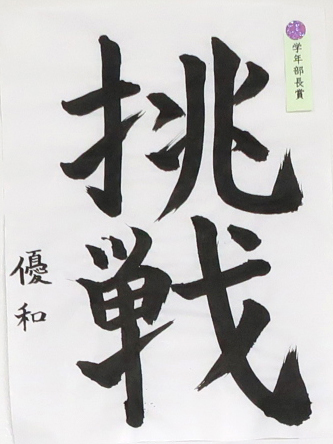 学年部長賞
挑戦
優和